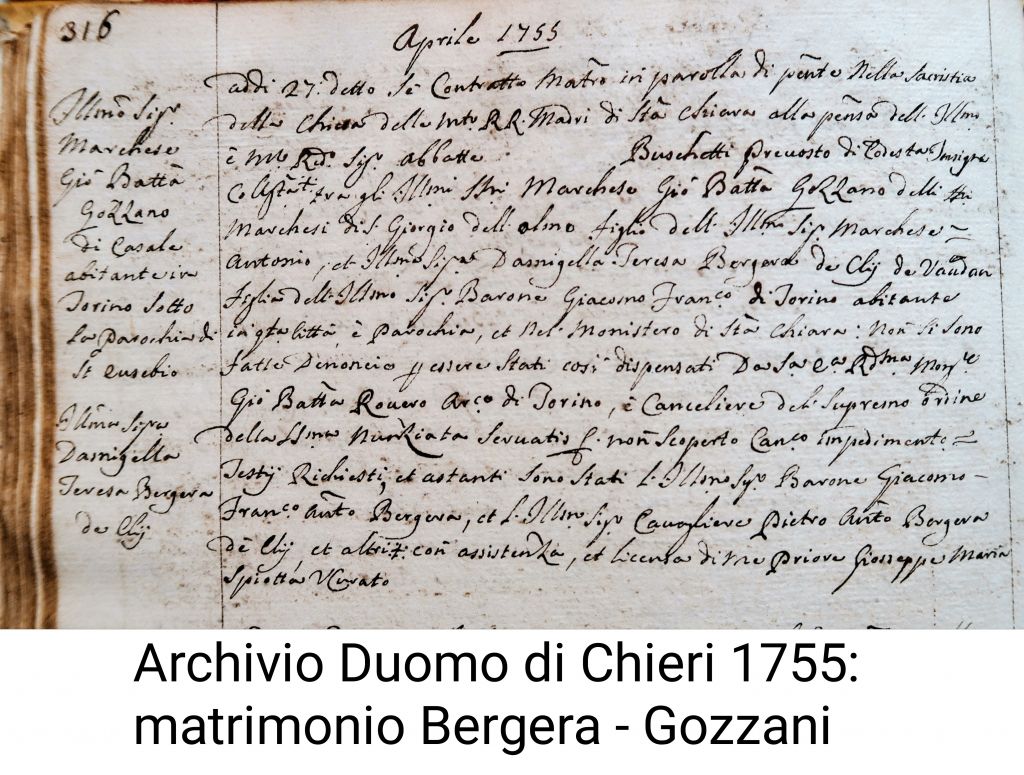 316
Aprile 1755
Illmo Sigr
Marchese
Gio Batta
Gozzano
di Casale
abitante in
Torino Sotto
la parochia di
St eusebio
Illma Sigra
Damigella
Teresa Bergera
de Clij
addi 27: detto Sè Contratto Matro in parolla di pente Nella Sacristia
della Chiesa delle Mto RR: Madri di Sta Chiara alla pensa dell: Illmo
è Mto Rdo Sigr abbatte Buschetti Prevosto di Codesta Insigne
fra gli Illmi Marchese Gio Batta Gozzano delli
Marchesi di S: Giorgio dell olmo figlio dell: Illmo Sigr Marchese =
Antonio, et Illma Sigra Damigella Teresa Bergera de Clij de Vaudan
figlia dell: Illmo Sigr Barone Giacomo Franco di Torino abitante
in qta Città è Parochia, et Nel Monistero di Sta Chiara: Non Si Sono
fatte Denoncie essere Stati cosi dispensati Da Sa Ea Rdma Monre
Gio Batta Rovero Arco di Torino, è Canceliere del Supremo ordine
della SSma Nunziata Servatis non Scoperto Canco impedimento =
Testij Richiesti, et astanti Sono Stati L: Illmo Sigr Barone Giacomo -
Franco Anto Bergera, et L: Illmo Sigr Cavagliere Pietro Anto Bergera
dè Clij, et altri con assistenza, et licenza di me Priore Giosseppe Maria
Spiotta VCurato
Archivio Duomo di Chieri 1755:
matrimonio Bergera - Gozzani